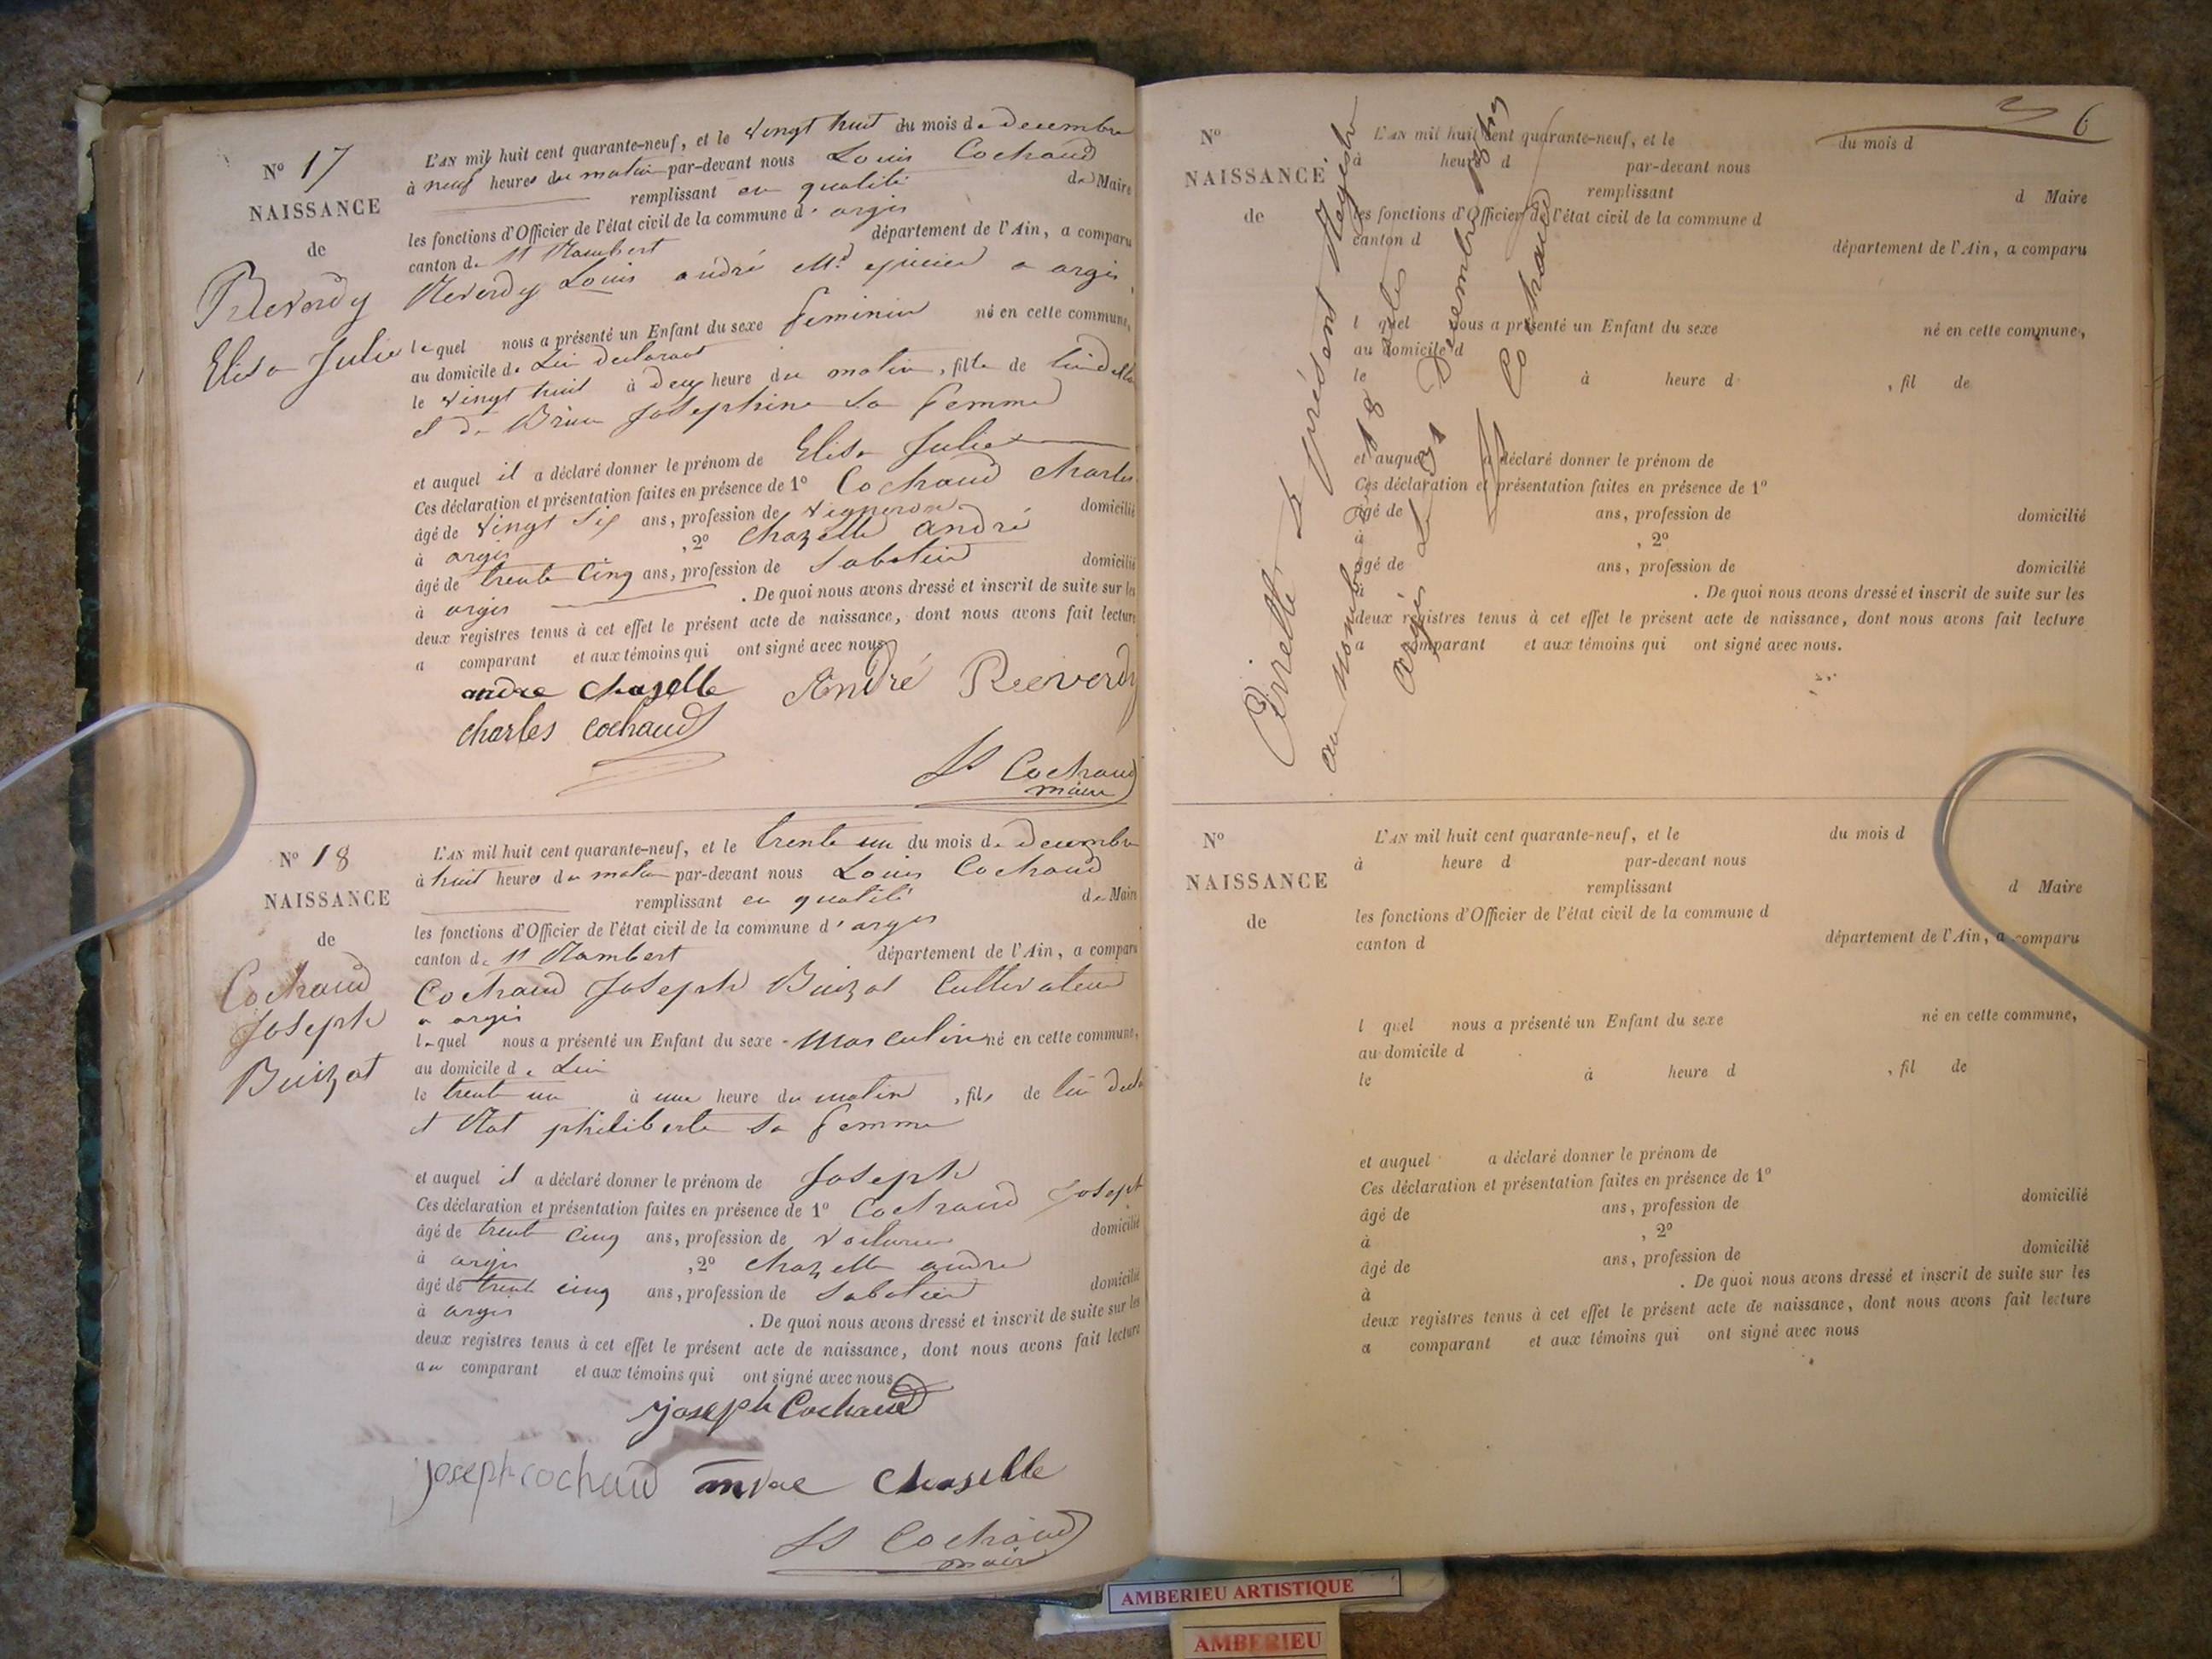 N° 17
NAISSANCE
de
Reverdy
Elisa Julie
L'AN mil huit cent quarante-neuf, et le vingt huit du mois de decembre
à neuf heures du matin par-devant nous Louis Cochaud
remplissant en qualité de Maire
les fonctions d'Officier de l'état civil de la commune d'argis
canton de St Rambert département de l'Ain, a comparu
Reverdy Louis andré Md epicier a argis
lequel nous a présenté un Enfant du sexe feminin né en cette commune,
au domicile de Lui declarant
le vingt huit à deux heure du matin, fille de
et de Josephine sa femme
et auquel il a déclaré donner le prénom de Elisa Julie
Ces déclaration et présentation faites en présence de 1° Cochaud charles
âgé de vingt six ans, profession de vigneron domicilié
à argis , 2° Chazelle andré
âgé de trente cinq ans, profession de Sabotier domicilié
à argis . De quoi nous avons dressé et inscrit de suite sur les
deux registres tenus à cet effet le présent acte de naissance, dont nous avons fait lecture
a comparant et aux témoins qui ont signé avec nous
andre chazelle André Reverdy
charles cochaud
Ls Cochaud
maire
N° 18
NAISSANCE
de
Cochaud
Joseph
Buizat
L'AN mil huit cent quarante-neuf, et le trente un du mois de decembre
à huit heures du matin par-devant nous Louis Cochaud
remplissant en qualité de Maire
les fonctions d'Officier de l'état civil de la commune d'argis
canton de St Rambert département de l'Ain, a comparu
Cochaud Joseph Buizat Cultivateur
a argis
lequel nous a présenté un Enfant du sexe masculin né en cette commune,
au domicile de Lui
le trente un à une heure du matin, fils de lui
et philiberte sa femme
et auquel il a déclaré donner le prénom de Joseph
Ces déclaration et présentation faites en présence de 1° Cochaud Joseph
âgé de trente cinq ans, profession de voiturier domicilié
à argis , 2° chazelle andre
âgé de trente cinq ans, profession de Sabotier domicilié
à argis . De quoi nous avons dressé et inscrit de suite sur les
deux registres tenus à cet effet le présent acte de naissance, dont nous avons fait lecture
au comparant et aux témoins qui ont signé avec nous
joseph Cochaud
joseph cochaud andre chazelle
Ls Cochaud
maire
6
N°
NAISSANCE
de
L'AN mil huit cent quarante-neuf, et le du mois d
à heure d par-devant nous
remplissant d Maire
les fonctions d'Officier de l'état civil de la commune d
canton d département de l'Ain, a comparu
l quel nous a présenté un Enfant du sexe né en cette commune,
au domicile d
le à heure d , fil de
et auquel a déclaré donner le prénom de
Ces déclaration et présentation faites en présence de 1°
âgé de ans, profession de domicilié
à , 2°
âgé de ans, profession de domicilié
à . De quoi nous avons dressé et inscrit de suite sur les
deux registres tenus à cet effet le présent acte de naissance, dont nous avons fait lecture
a comparant et aux témoins qui ont signé avec nous.
le présent Registre
au nombre de 18 actes
argis le 31 Decembre 1849
Cochaud
N°
NAISSANCE
de
L'AN mil huit cent quarante-neuf, et le du mois d
à heure d par-devant nous
remplissant d Maire
les fonctions d'Officier de l'état civil de la commune d
canton d département de l'Ain, a comparu
l quel nous a présenté un Enfant du sexe né en cette commune,
au domicile d
le à heure d , fil de
et auquel a déclaré donner le prénom de
Ces déclaration et présentation faites en présence de 1°
âgé de ans, profession de domicilié
à , 2°
âgé de ans, profession de domicilié
à . De quoi nous avons dressé et inscrit de suite sur les
deux registres tenus à cet effet le présent acte de naissance, dont nous avons fait lecture
a comparant et aux témoins qui ont signé avec nous
AMBERIEU ARTISTIQUE
AMBERIEU